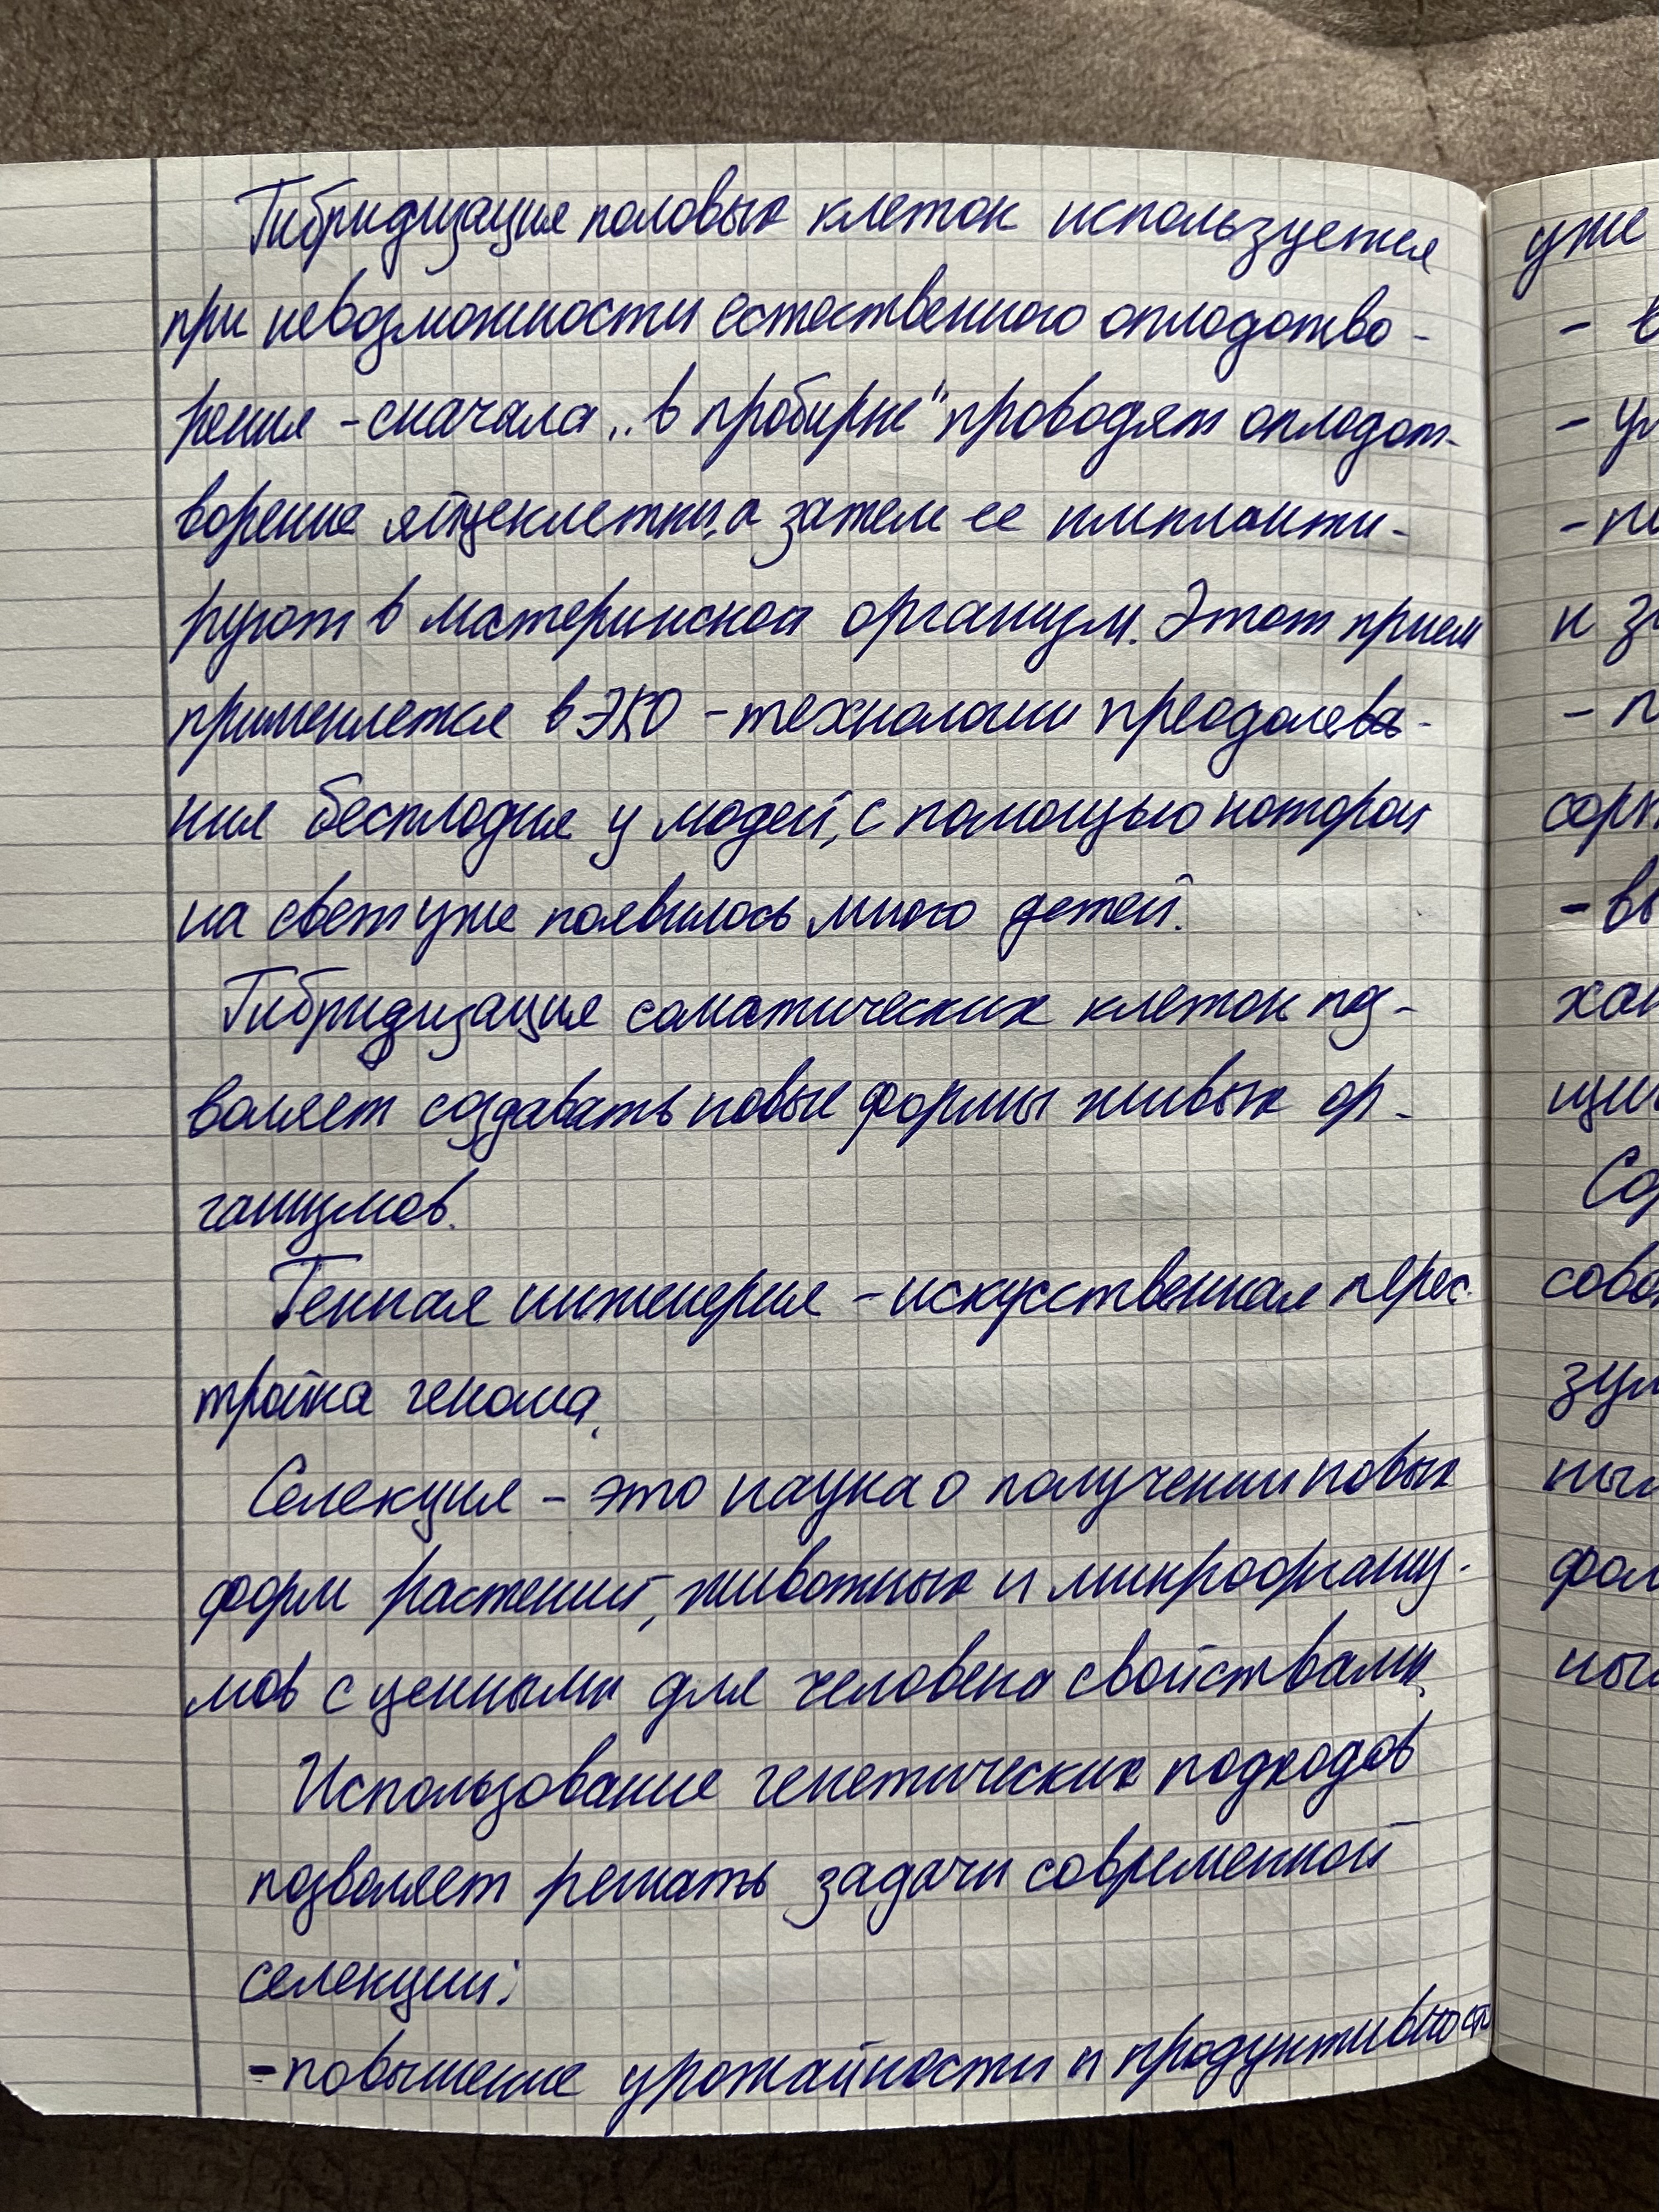 Гибридизация половых клеток используется
при невозможности естественного оплодотво-
рения - сначала „в пробирке" проводят оплодот-
ворение яйцеклетки, а затем ее имиланти-
руют в материнской организм. Этот прием
применяется в ЭКО - технологии преодолева-
ния бесплодия у людей, с помощью которой
на свет уже появилось много детей.
Гибридизация соматических клеток поз-
воляет создавать новые формы живых ор-
ганизмов.
Генная инженерия - искусственная перес-
тройка генома.
Селекция - это наука о получении новых
форм растений, животных и микроорганиз-
мов с ценными для человека свойствами.
Использование генетических подходов
позволяет решать задачи современной
селекции:
- повышение урожайности и продуктивности
уже
-
-
-
к
-
-
Со